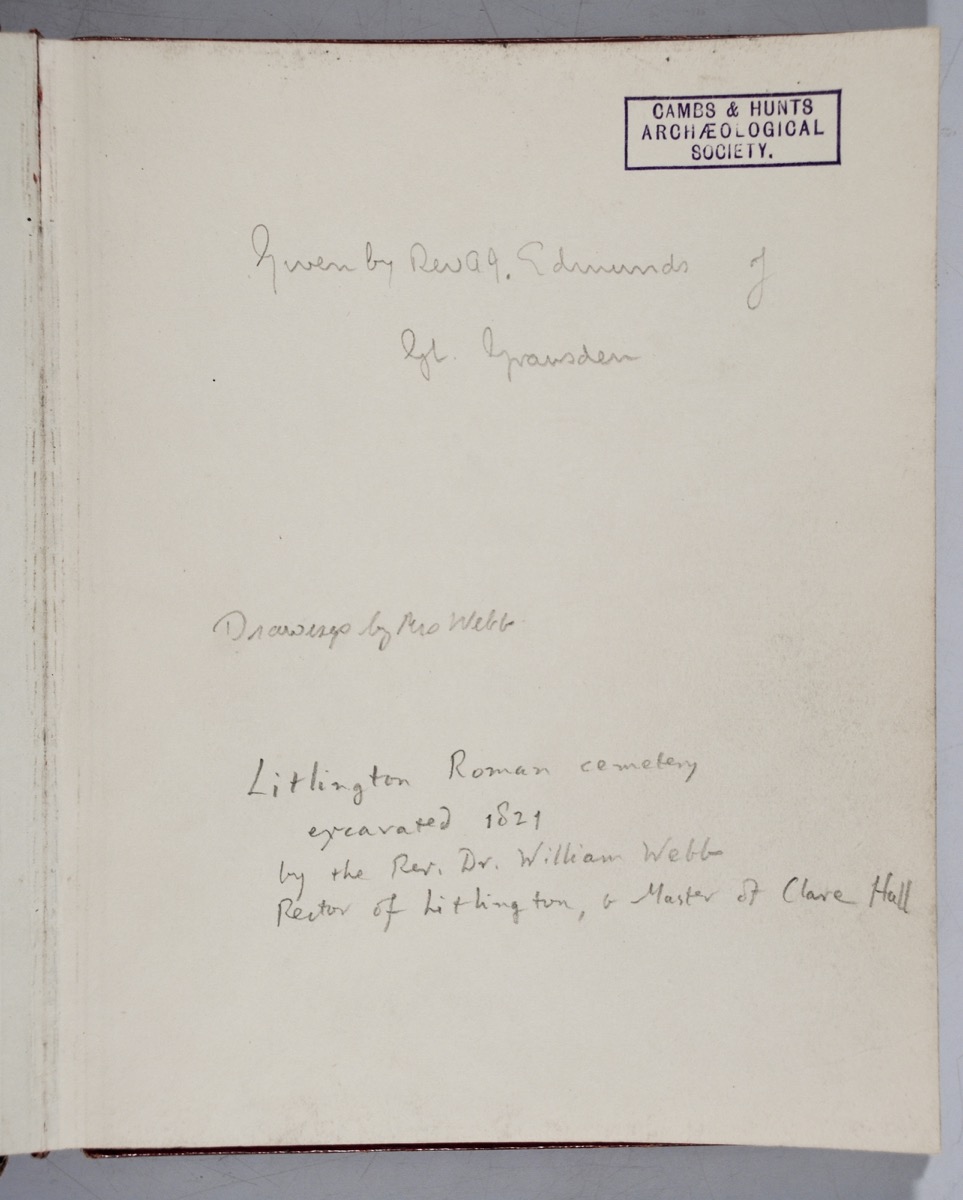 CAMBS & HUNTS
ARCHÆOLOGICAL
SOCIETY.
Given by Rev A J. Edmunds of
Gt. Gransden
Drawings by Mrs Webb
Litlington Roman cemetery
excavated 1821
by the Rev. Dr. William Webb
Rector of Litlington, & Master of Clare Hall